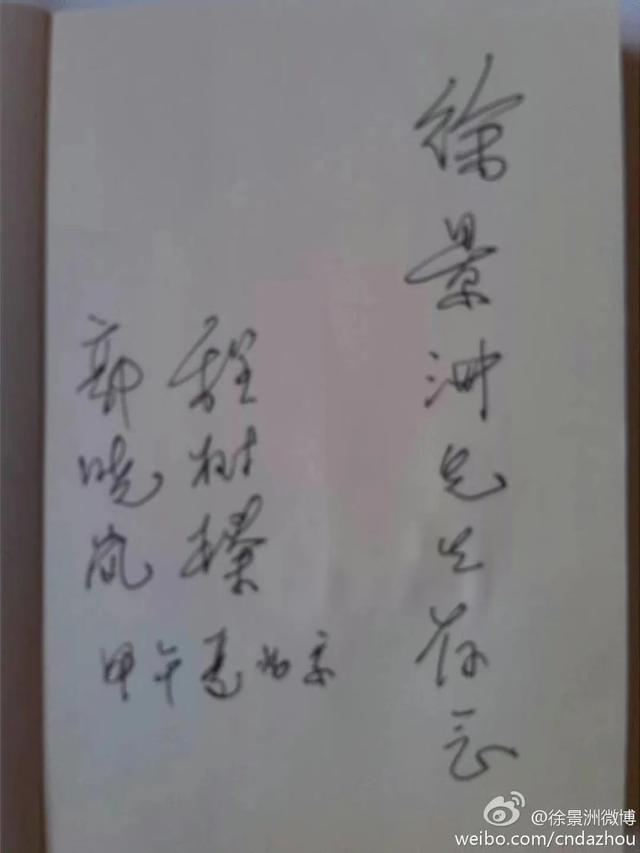 徐景洲先生存
程树榛
郭晓岚
甲午夏
@徐景洲微博
weibo.com/cndazhou